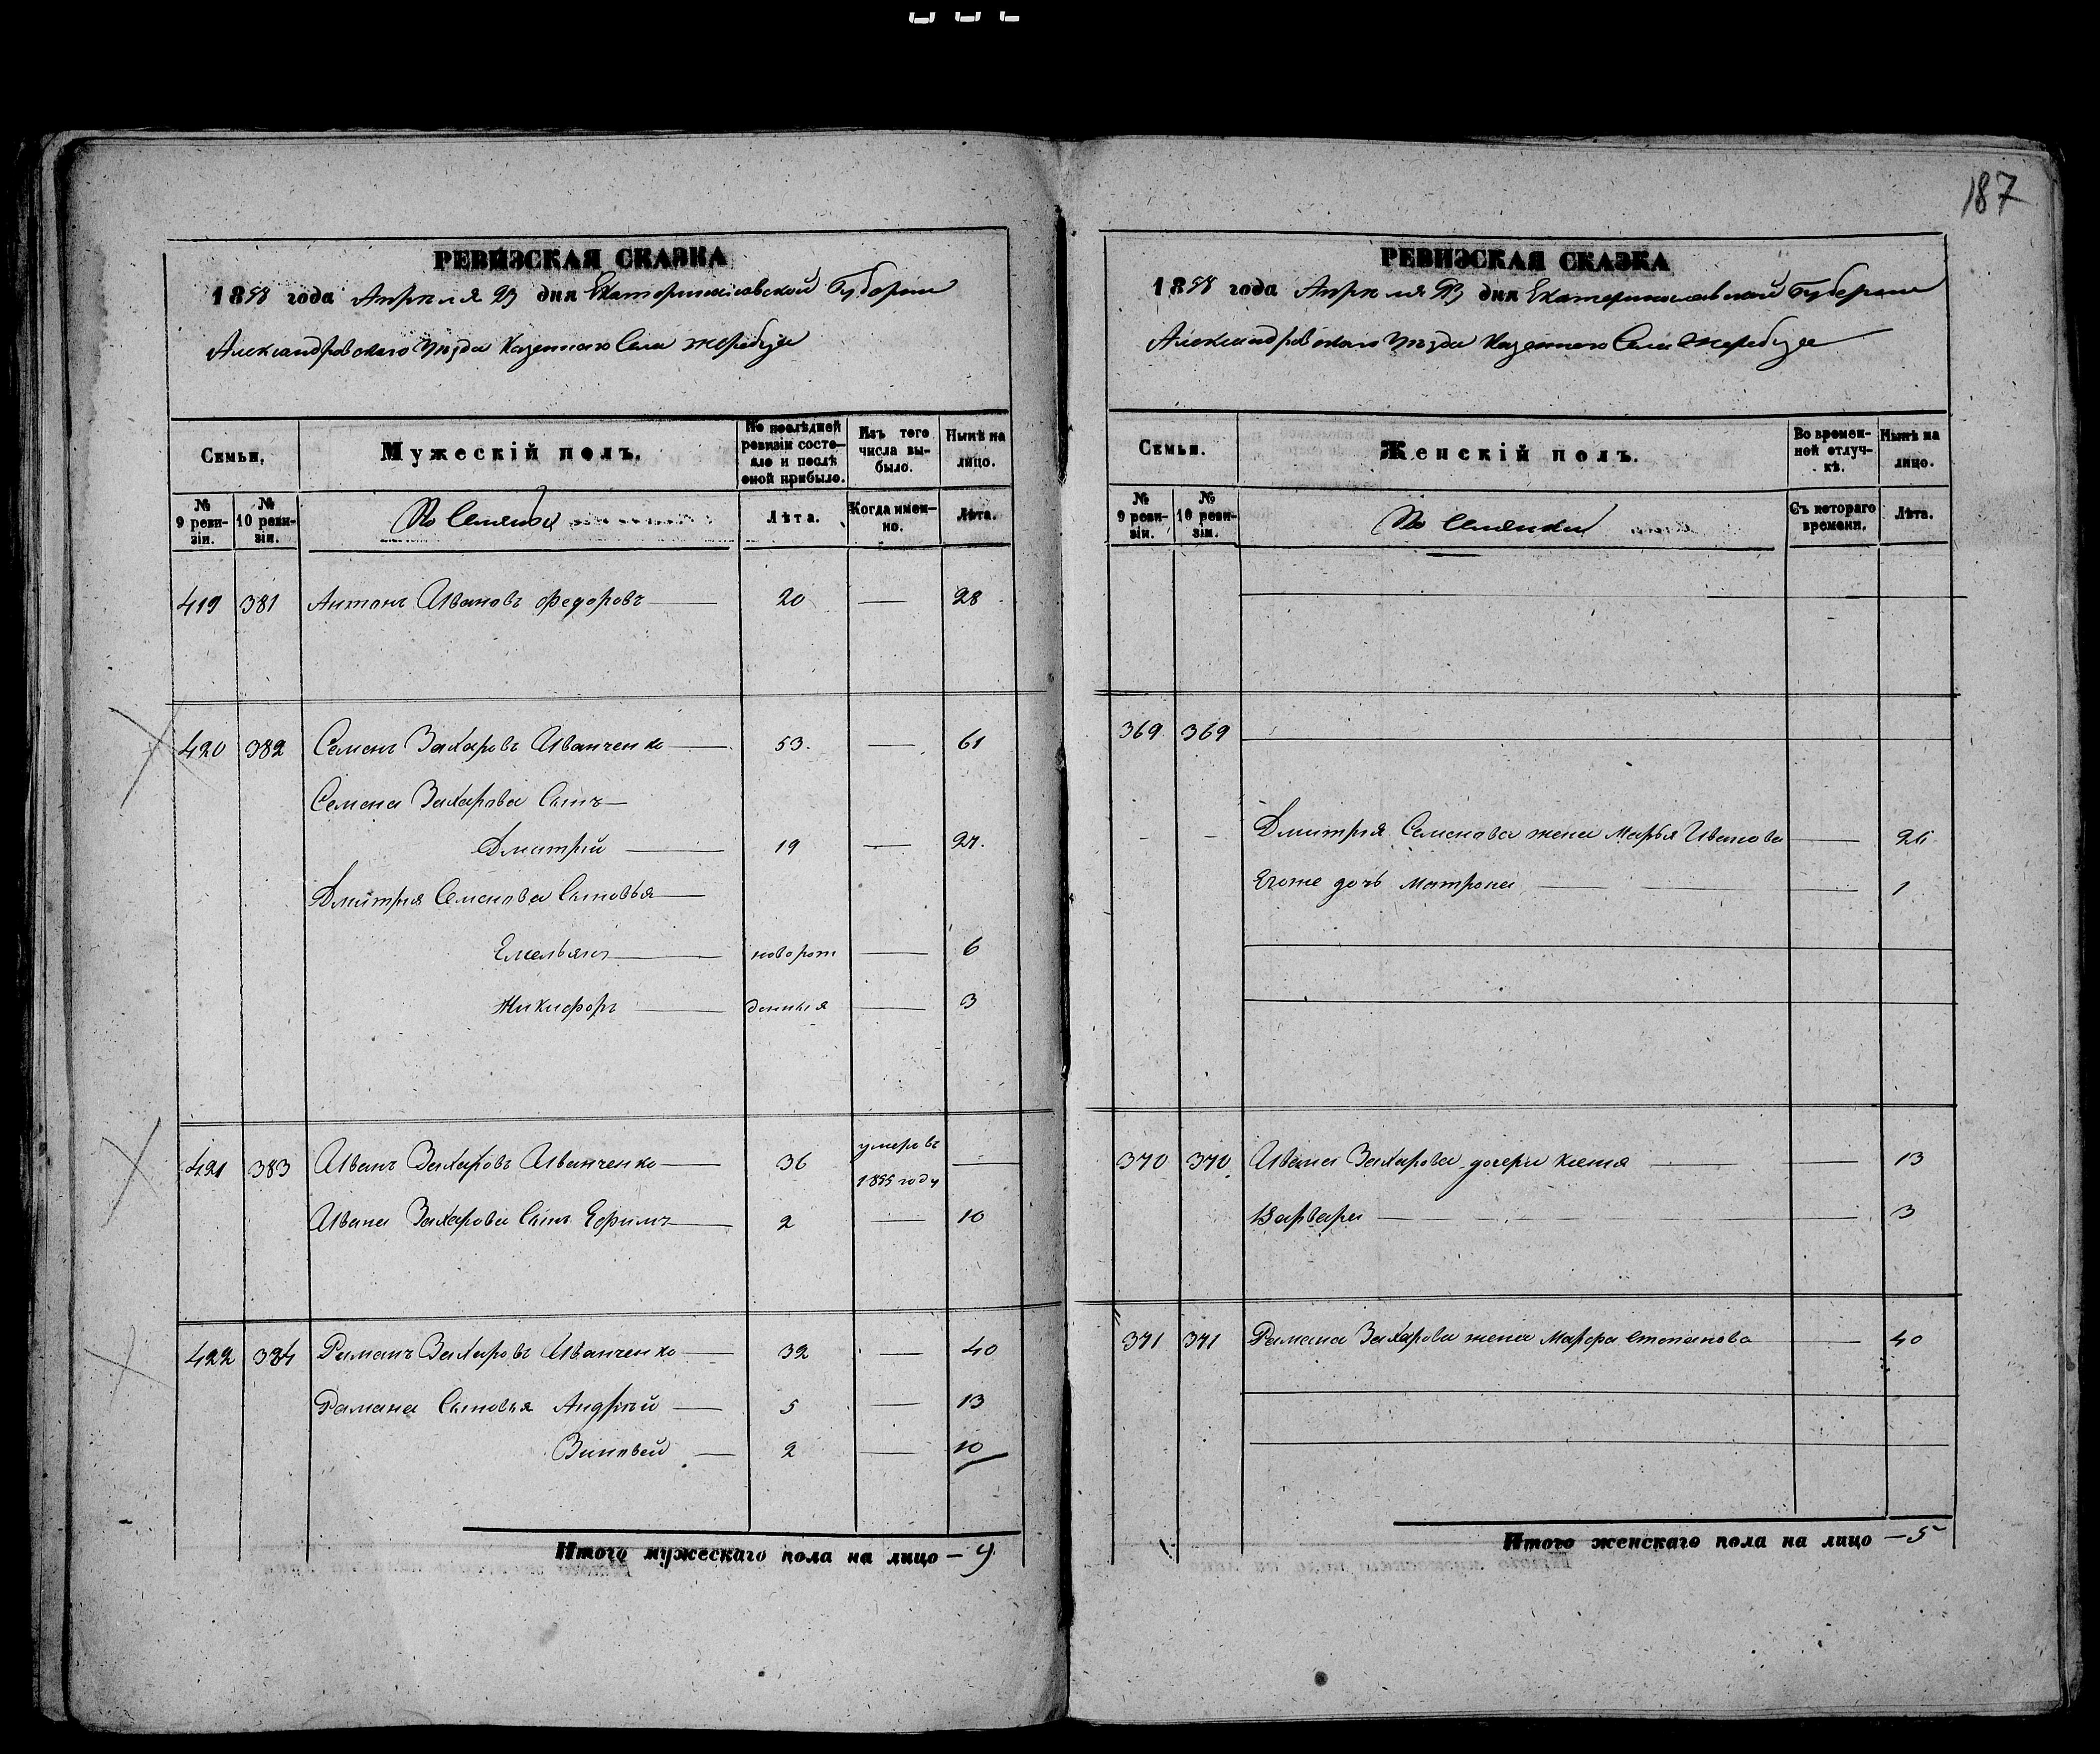 187
РЕВИЗСКАЯ СКАЗКА
1858 года Апреля 23 дня Екатеринославской Губернии
Александровского Уезда Казенного Села Жеребца
Семьи.
Мужескій полъ.
По послѣдней ревизіи состояло и послѣ оной прибыло.
Изъ того числа выбыло.
Нынѣ на лицо.
№ 9 ревизіи.
№ 10 ревизіи.
Лѣта.
Когда именно.
Лѣта.
419 381 Антонъ Ивановъ Федоровъ — 20 — 28
420 382 Семенъ Захаровъ Иванченко — 53. — 61
Семена Захарова Сынъ —
Дмитрій — 19 — 27.
Дмитрія Семенова Сыновья —
Емельянъ — новорож — 6
Никифоръ — денныя — 3
421 383 Иванъ Захаровъ Иванченко — 36 умеръ въ 1855 году —
Ивана Захарова Сынъ Ефимъ — 2 — 10
422 384 Романъ Захаровъ Иванченко — 32 — 40
Романа Сыновья Андрѣй — 5 — 13
Зиновей — 2 — 10
Итого мужескаго пола на лицо — 9
РЕВИЗСКАЯ СКАЗКА
1858 года Апреля 23 дня Екатеринославской Губернии
Александровского Уезда Казенного Села Жеребца
Семьи.
Женскій полъ.
Во временной отлучкѣ.
Нынѣ на лицо.
№ 9 ревизіи.
№ 10 ревизіи.
Съ котораго времени.
Лѣта.
369 369
Дмитрия Семенова жена Марья Иванова — 26
Егоже дочь Матрона — 1
370 370 Ивана Захарова дочери — 13
Варвара — 3
371 371 Романа Захарова жена Марфа Степанова — 40
Итого женскаго пола на лицо — 5